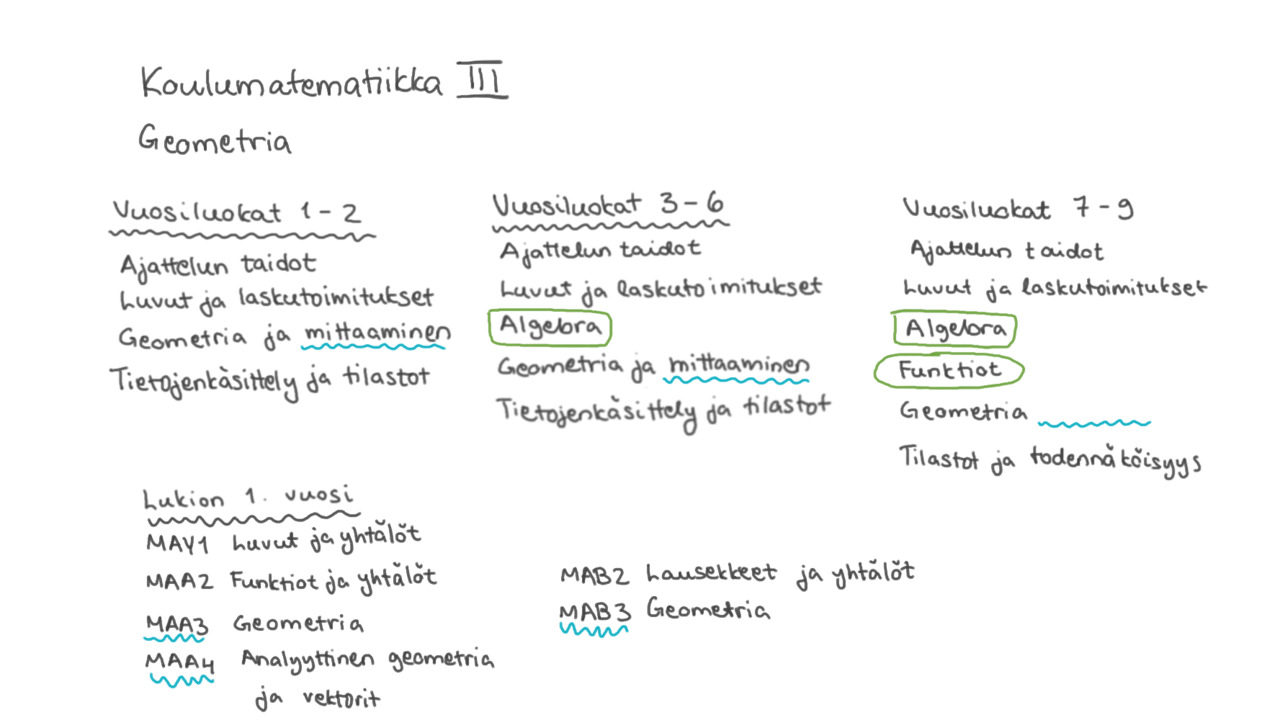 Koulumatematiikka III
Geometria
Vuosiluokat 1-2
Ajattelun taidot
Luvut ja laskutoimitukset
Geometria ja mittaaminen
Tietojenkäsittely ja tilastot
Vuosiluokat 3-6
Ajattelun taidot
Luvut ja laskutoimitukset
Algebra
Geometria ja mittaaminen
Tietojenkäsittely ja tilastot
Vuosiluokat 7-9
Ajattelun taidot
Luvut ja laskutoimitukset
Algebra
Funktiot
Geometria
Tilastot ja todennäköisyys
Lukion 1. vuosi
MAY1 Luvut ja yhtälöt
MAA2 Funktiot ja yhtälöt
MAA3 Geometria
MAA4 Analyyttinen geometria
ja vektorit
MAB2 Lausekkeet ja yhtälöt
MAB3 Geometria